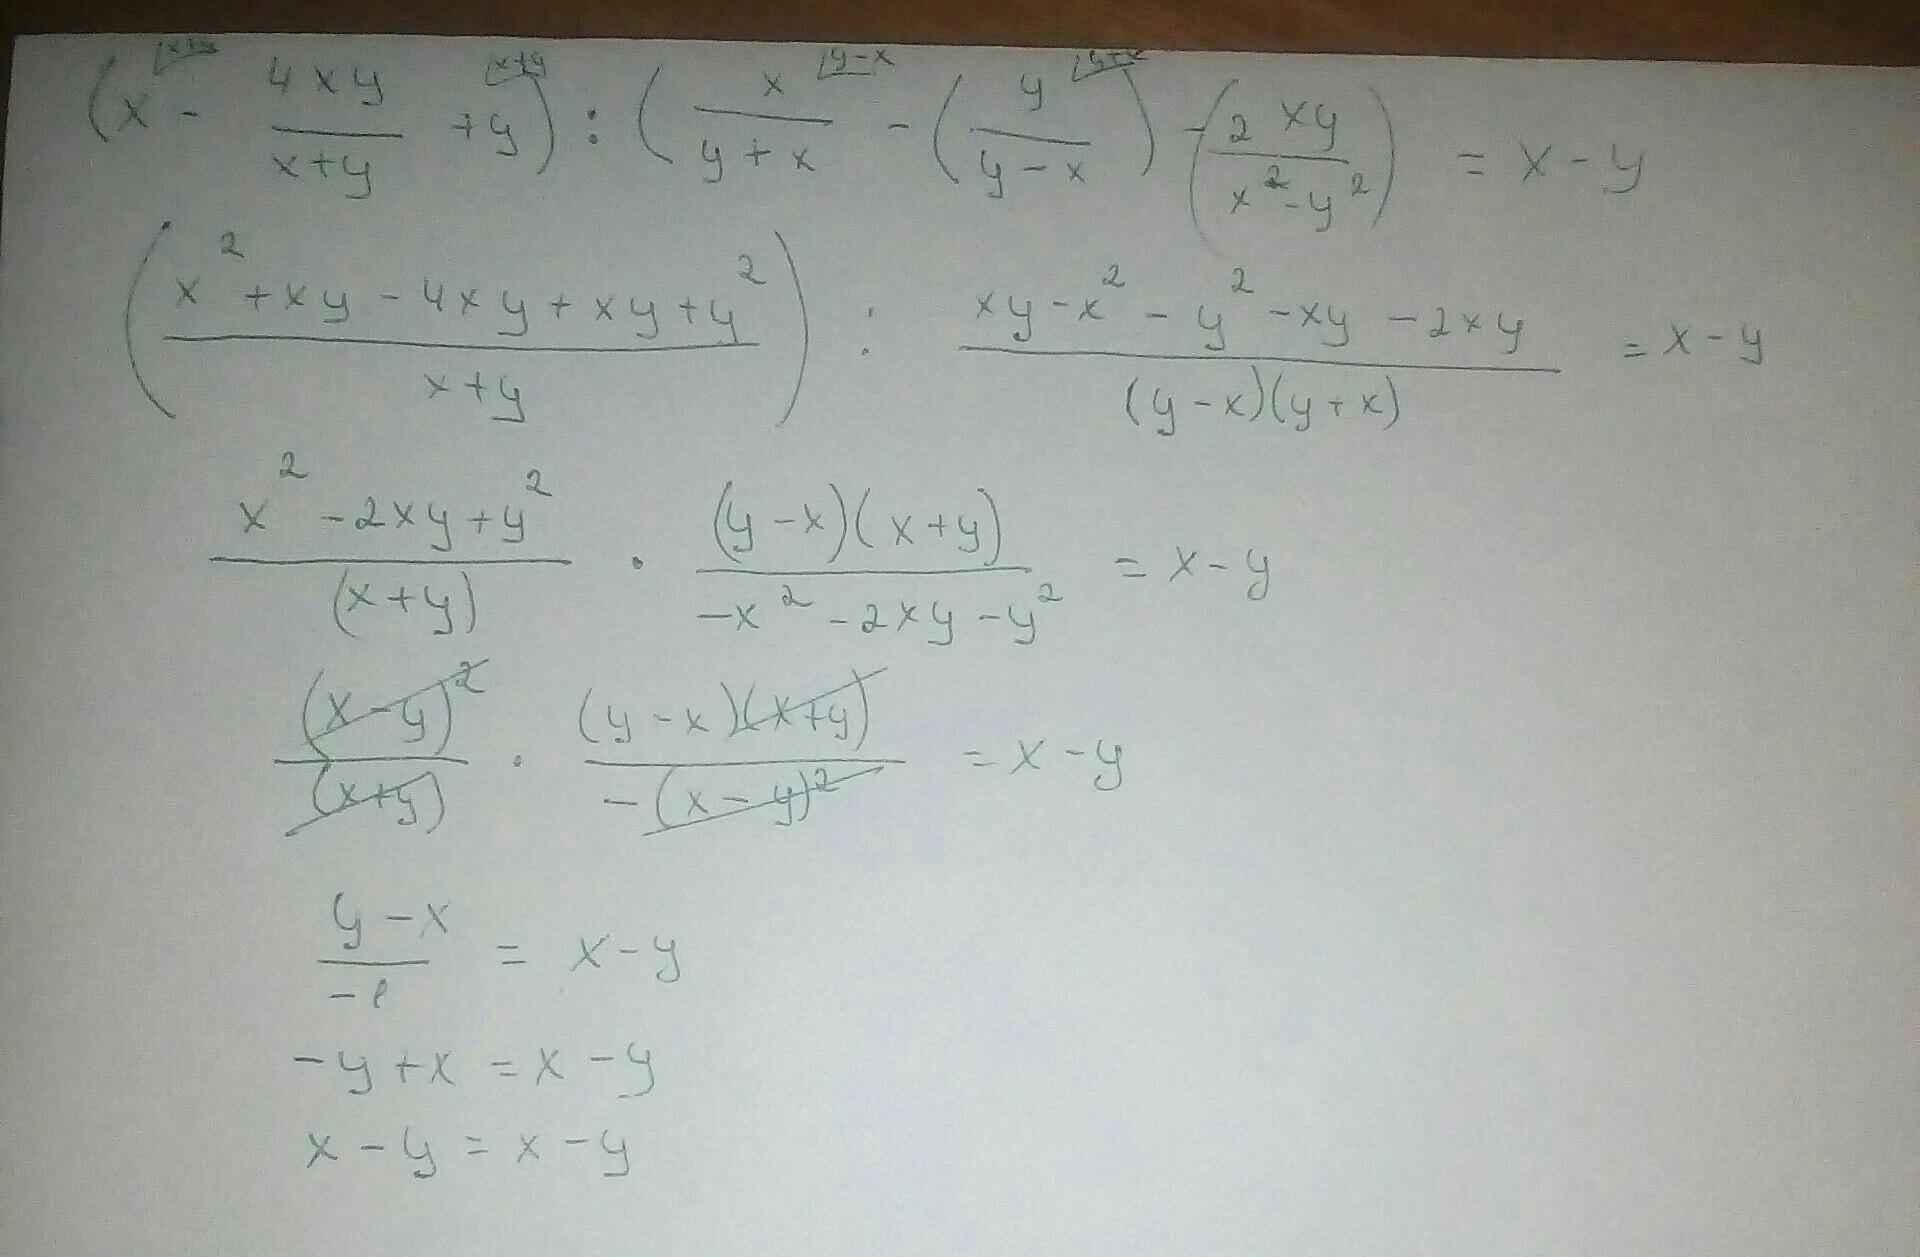 (x^{|x+y} - \frac{4xy}{x+y} + y^{|x+y}) : (\frac{x}{y+x}^{|y-x} - (\frac{y}{y-x}^{|y+x}) - (\frac{2xy}{x^2-y^2}) = x-y
(\frac{x^2+xy-4xy+xy+y^2}{x+y}) : \frac{xy-x^2-y^2-xy-2xy}{(y-x)(y+x)} = x-y
\frac{x^2-2xy+y^2}{(x+y)} · \frac{(y-x)(x+y)}{-x^2-2xy-y^2} = x-y
\frac{(x-y)^2}{(x+y)} · \frac{(y-x)(x+y)}{-(x-y)^2} = x-y
\frac{y-x}{-1} = x-y
-y+x = x-y
x-y = x-y